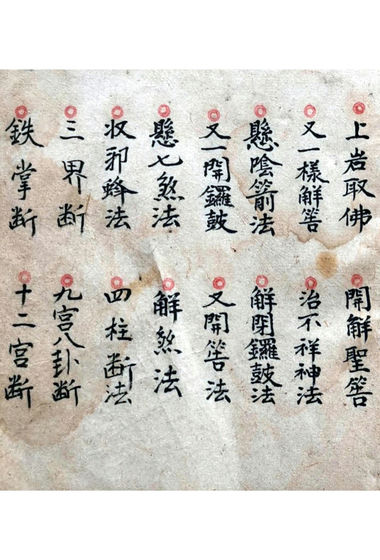 上岩取佛
開解聖筶
又一樣解筶
治不祥神法
懸陰箭法
解閉鑼鼓法
又一開鑼鼓
又開筶法
懸七煞法
解煞法
収卯蜂法
四柱断法
三界断
九宫八卦断
鉄掌断
十二宫断